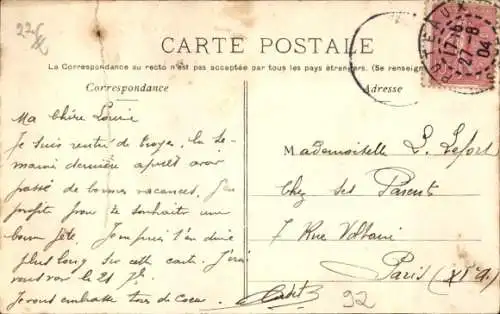 22
CARTE POSTALE
La Correspondance au recto n'est pas acceptée par tous les pays étrangers. (Se renseign
Correspondance
Adresse
PUTEAUX
17-6
27-8
04
Ma Chère Louise
Je suis rentré de Troyes la se-
maine dernière après avoir
passé de bonnes vacances. J'en
profite pour te souhaiter une
bonne fête. Je ne puis t'en dire
plus long sur cette carte. J'irai
vous voir le 21 7bre
Je vous embrasse tous de cœur
Mademoiselle L. Lefort
Chez ses Parents
7 Rue Voltaire
Paris (XIe A)
92